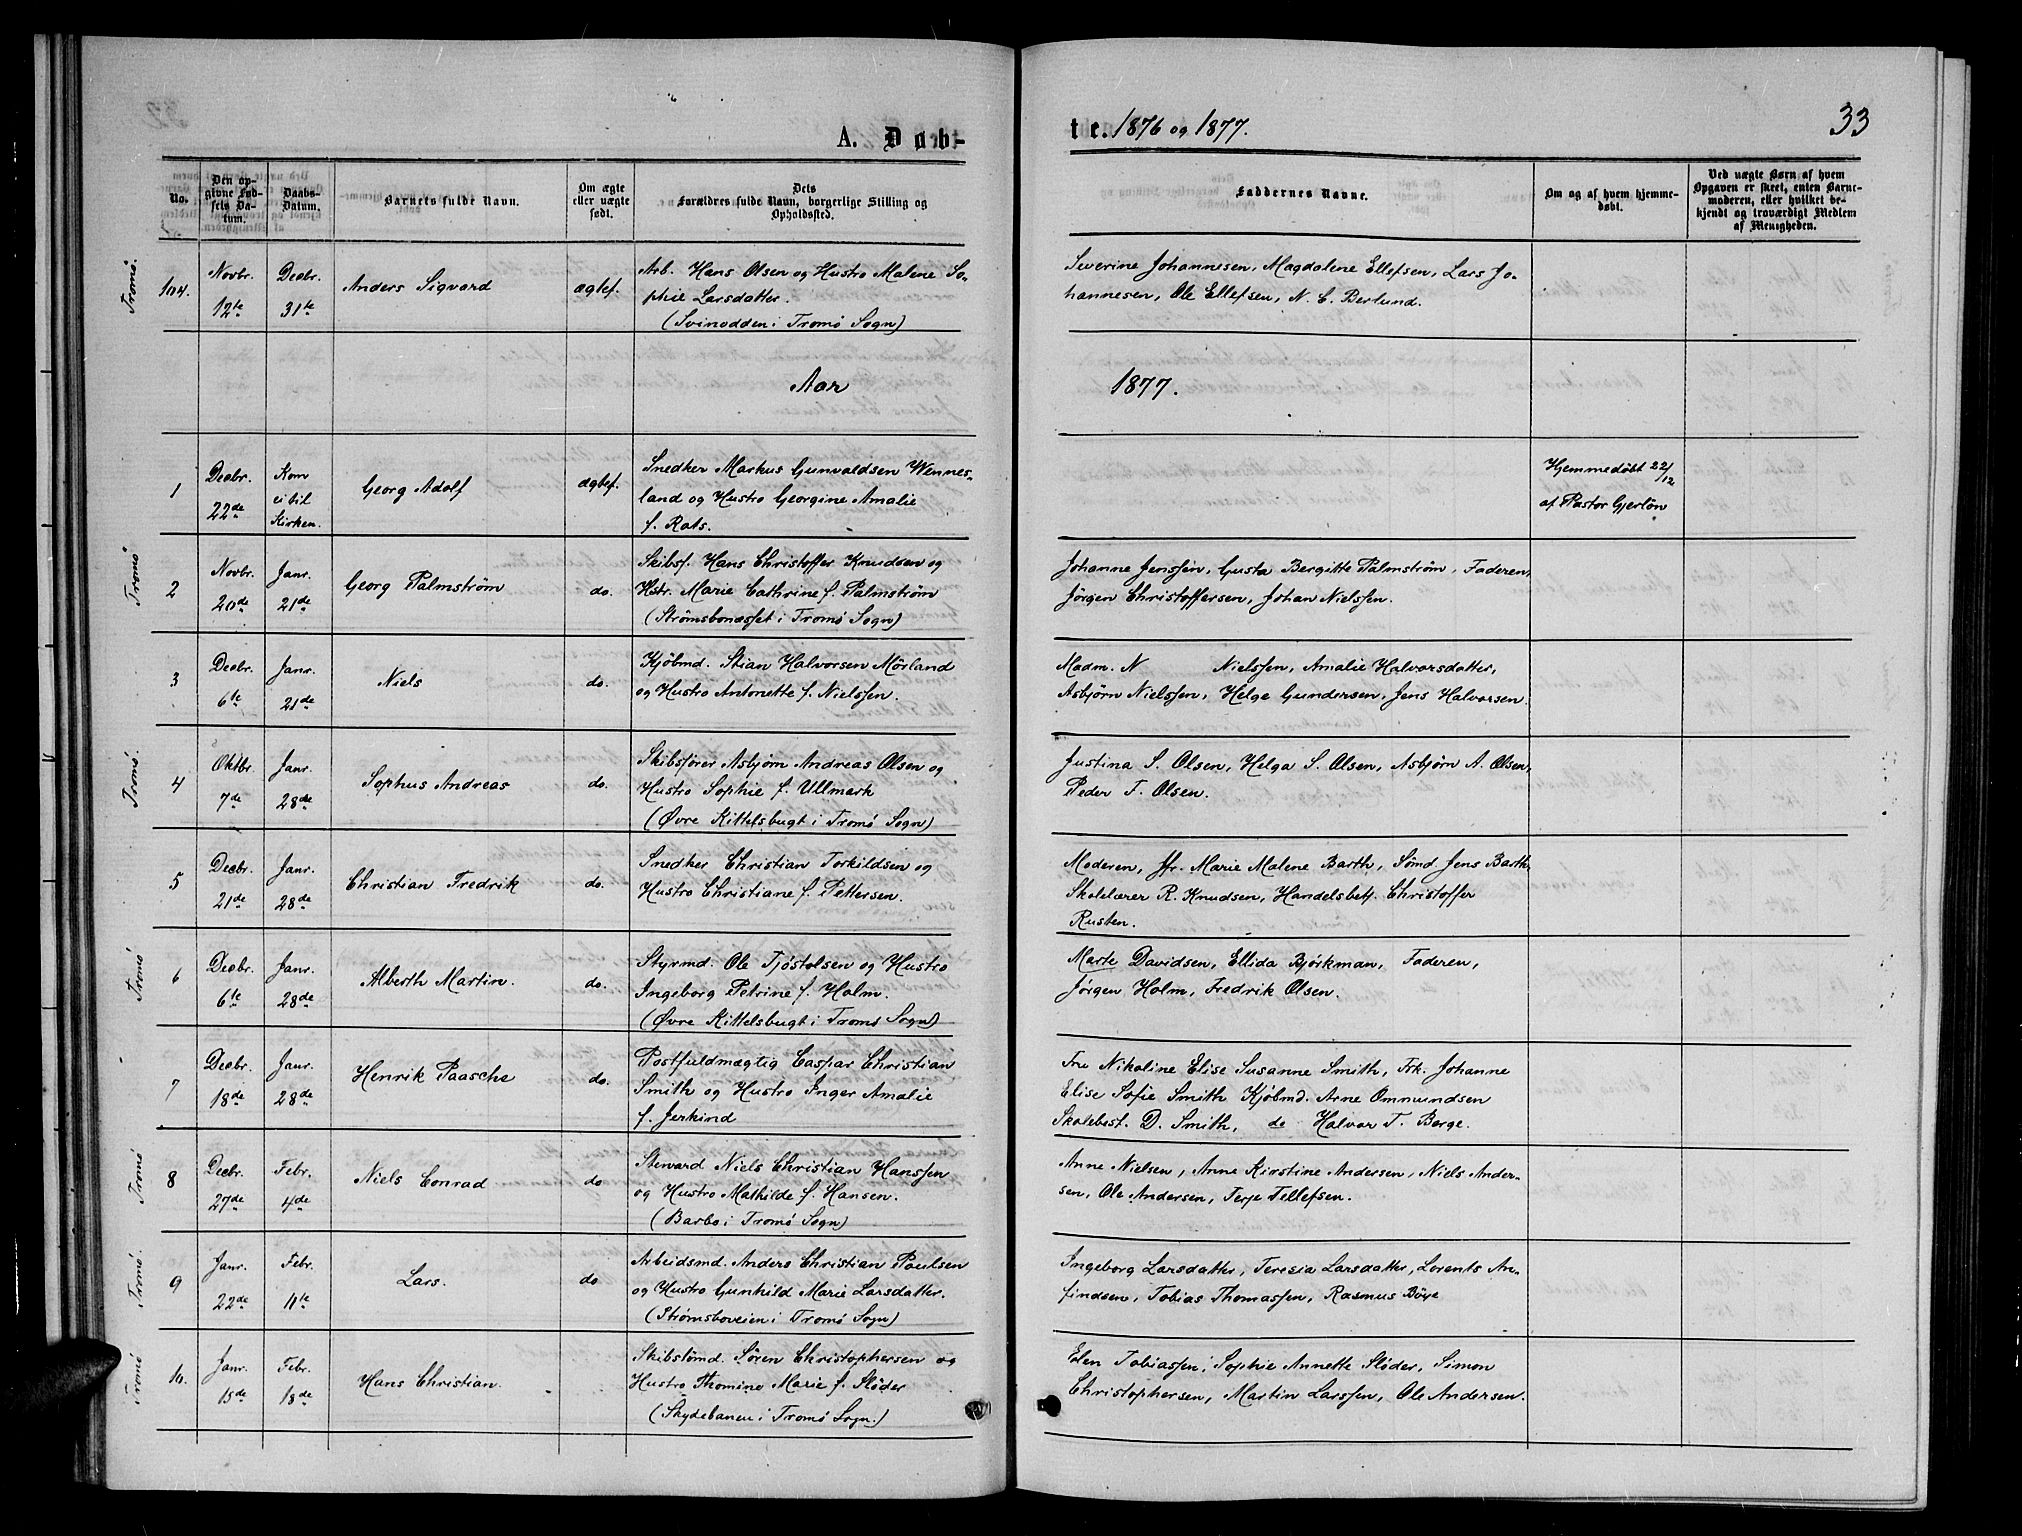 A. Døb-
te. 1876 og 1877.
33
No.
Den op-
givne Fød-
sels Da-
tum.
Daabs-
Datum.
Barnets fulde Navn.
Om ægte
eller uægte
født.
Dets
Forældres fulde Navn, borgerlige Stilling og
Opholdssted.
Faddernes Navne.
Om og af hvem hjemme-
døbt.
Ved uægte Børn af hvem
Opgaven er skeet, enten Barne-
moderen, eller hvilket be-
kjendt og troværdigt Medlem
af Menigheden.
Tromø.
104.
Novbr.
12te
Decbr.
31te
Anders Sigvard
ægtef.
Arb. Hans Olsen og Hustro Malene So-
phie Larsdatter.
(Svinodden i Tromø Sogn)
Severine Johannesen, Magdalene Ellefsen, Lars Jo-
hannesen, Ole Ellefsen, N. C. Berlund.
Aar
1877.
1
Decbr.
22de
Kom
ei til
Kirken.
Georg Adolf
ægtef.
Snedker Markus Gunvaldsen Wennes-
land og Hustro Georgine Amalie
f. Rots.
Hjemmedøbt 22/12
af Pastor Gjerløw
Tromø
2
Novbr.
20de
Janr.
21de
Georg Palmstrøm
do.
Skibsf. Hans Christoffer Knudsen og
Hstr. Marie Cathrine f. Palmstrøm
(Strømsbonæsset i Tromø Sogn)
Johanne Jenssen, Gusta Bergitte Palmstrøm, Faderen,
Jørgen Christoffersen, Johan Nielssen.
3
Decbr.
6te
Janr.
21de
Niels
do.
Kjøbmd. Stian Halvorsen Mørland
og Hustro Antonette f. Nielssen.
Madm. N Nielssen, Amalie Halvorsdatter,
Asbjørn Nielssen, Helge Gundersen, Jens Halvorsen.
Tromø.
4
Oktbr.
7de
Janr.
28de
Sophus Andreas
do.
Skibsfører Asbjørn Andreas Olsen og
Hustro Sophie f. Ullmark
(Øvre Kittelsbugt i Tromø Sogn)
Justina S. Olsen, Helga S. Olsen, Asbjørn A. Olsen,
Peder T. Olsen.
5
Decbr.
21de
Janr.
28de
Christian Fredrik
do.
Snedker Christian Torkildsen og
Hustro Christiane f. Pettersen.
Moderen, Jfr. Marie Malene Barth, Sømd. Jens Barth,
Skolelærer R. Knudsen, Handelsbetj. Christoffer
Rusten.
Tromø
6
Decbr.
6te
Janr.
28de
Alberth Martin.
do.
Styrmd. Ole Tjøstolsen og Hustro
Ingeborg Petrine f. Holm.
(Øvre Kittelsbugt i Tromø Sogn)
Marte Davidsen, Ellida Bjørkman, Faderen,
Jørgen Holm, Fredrik Olsen.
7
Decbr.
18de
Janr.
28de
Henrik Paasche
do.
Postfuldmægtig Caspar Christian
Smith og Hustro Inger Amalie
f. Jerkind
Fru Nikoline Elise Susanne Smith, Frk. Johanne
Elise Sofie Smith Kjøbmd. Arne Ommundsen
Skolebest. D. Smith, do Halvor T. Berge.
Tromø
8
Decbr.
27de
Febr.
4de
Niels Conrad
do
Steward Niels Christian Hanssen
og Hustro Mathilde f. Hansen.
(Barbo i Tromø Sogn)
Anne Nielsen, Anne Kirstine Andersen, Niels Ander-
sen, Ole Andersen, Terje Tellefsen.
Tromø.
9
Janr.
22de
Febr.
11te
Lars.
do
Arbeidsmd. Anders Christian Poulsen
og Hustro Gunhild Marie Larsdatter.
(Strømsboveien i Tromø Sogn)
Ingeborg Larsdatter, Teresia Larsdatter, Lorents Arn-
findsen, Tobias Thomassen, Rasmus Bøye
Tromø
10.
Janr.
15de
Febr.
18de
Hans Christian.
Skibstømd. Søren Christophersen og
Hustro Thomine Marie f. Sløder
(Skydebanen i Tromø Sogn.)
Elen Tobiassen, Sophie Annette Sløder, Simon
Christophersen, Martin Larssen, Ole Andersen.